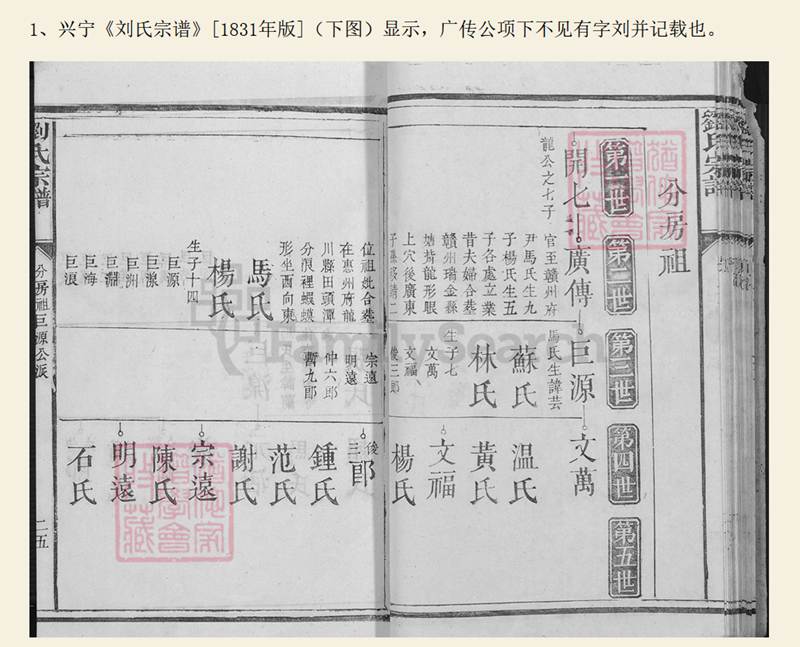 1、兴宁《刘氏宗谱》[1831年版]（下图）显示，广传公项下不见有字刘并记载也。
分房祖
第一世
第二世
第三世
第四世
第五世
開七
龍公之七子
廣傳
官至贛州府
尹馬氏生九
子楊氏生五
子各處立業
昔夫婦合葬
贛州瑞金縣
上穴後廣東
位祖妣合葬
在惠州府龍
川縣田頭潭
分浪裡蝦蟆
形坐酉向東
馬氏
楊氏
生子十四
巨源
巨濠
巨洲
巨淵
巨海
巨浪
巨源
馬氏生諱芸
蘇氏
林氏
生子七
文萬
文福
俊三郎
仲六郎
宗遠
明遠
文萬
温氏
黃氏
文福
楊氏
俊三郎
鍾氏
范氏
謝氏
宗遠
陳氏
明遠
石氏
劉氏宗譜
分房祖巨源公派
二五
FamilySearch